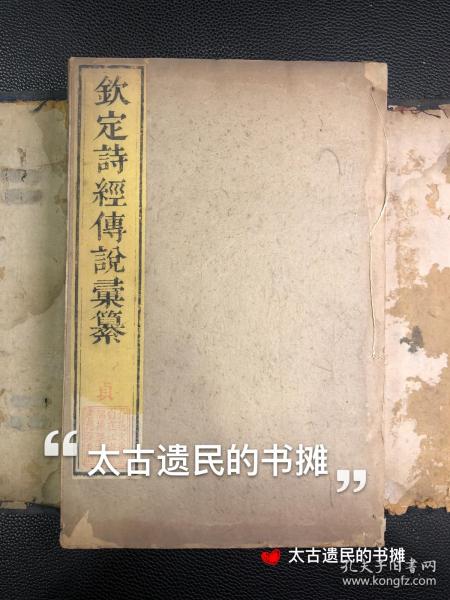 欽定詩經傳說彙纂
貞
“太古遗民的书摊”
太古遗民的书摊
孔夫子旧书网
www.kongfz.com